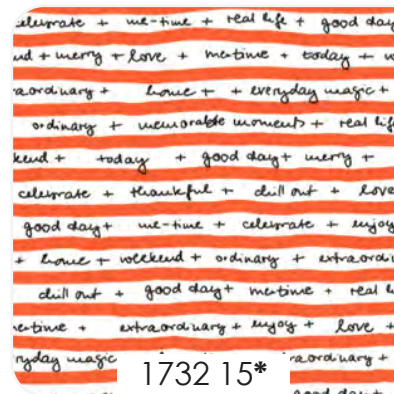 celebrate + me-time + real life + good day
+ merry + love + me-time + today +
home + + everyday magic +
ordinary + memorable moments + real life
+ today + good day + merry +
celebrate + thankful + chill out + love
good day + me-time + celebrate + enjoy
+ home + weekend + ordinary +
chill out + good day + me-time + real
+ extraordinary + enjoy + love +
magic
1732 15*
good day +